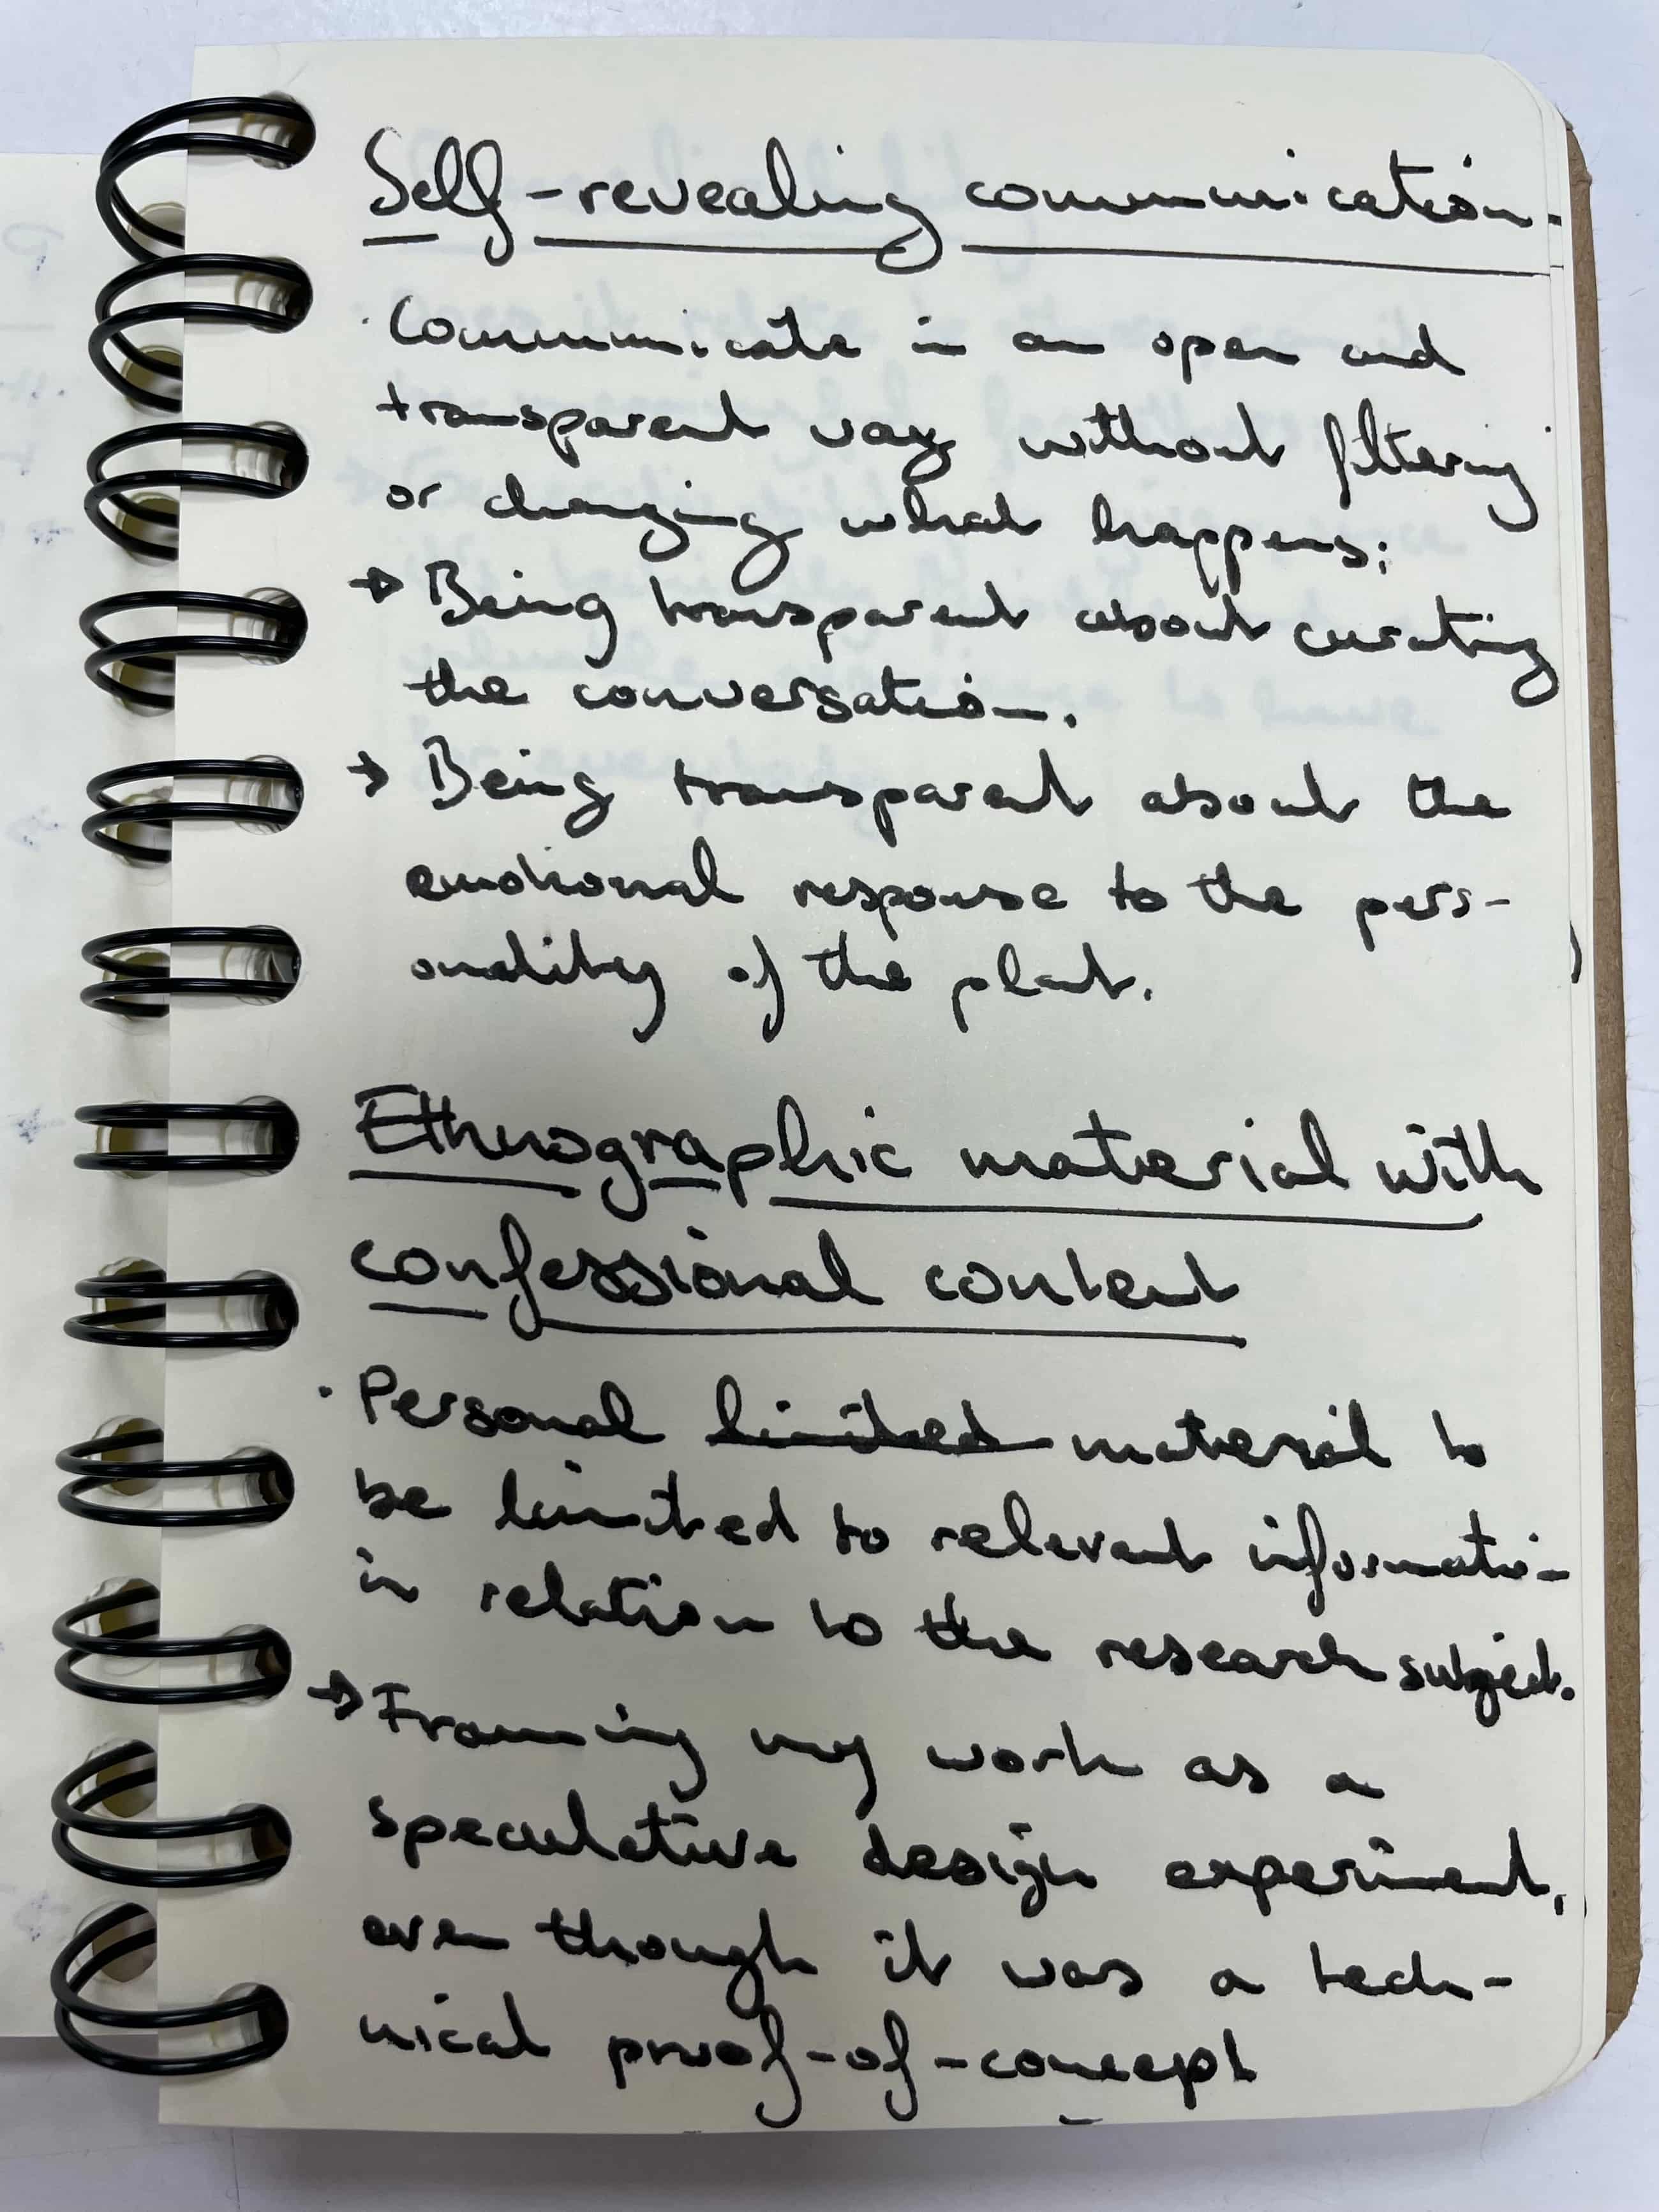 Self-revealing communication.
· Communicate in an open and
transparent way without filtering
or changing what happens:
→ Being transparent about curating
the conversation.
→ Being transparent about the
emotional response to the pers-
onality of the plant.
Ethnographic material with
confessional content
· Personal limited material to
be limited to relevant information
in relation to the research subject.
→ Framing my work as a
speculative design experiment,
even though it was a tech-
nical proof-of-concept